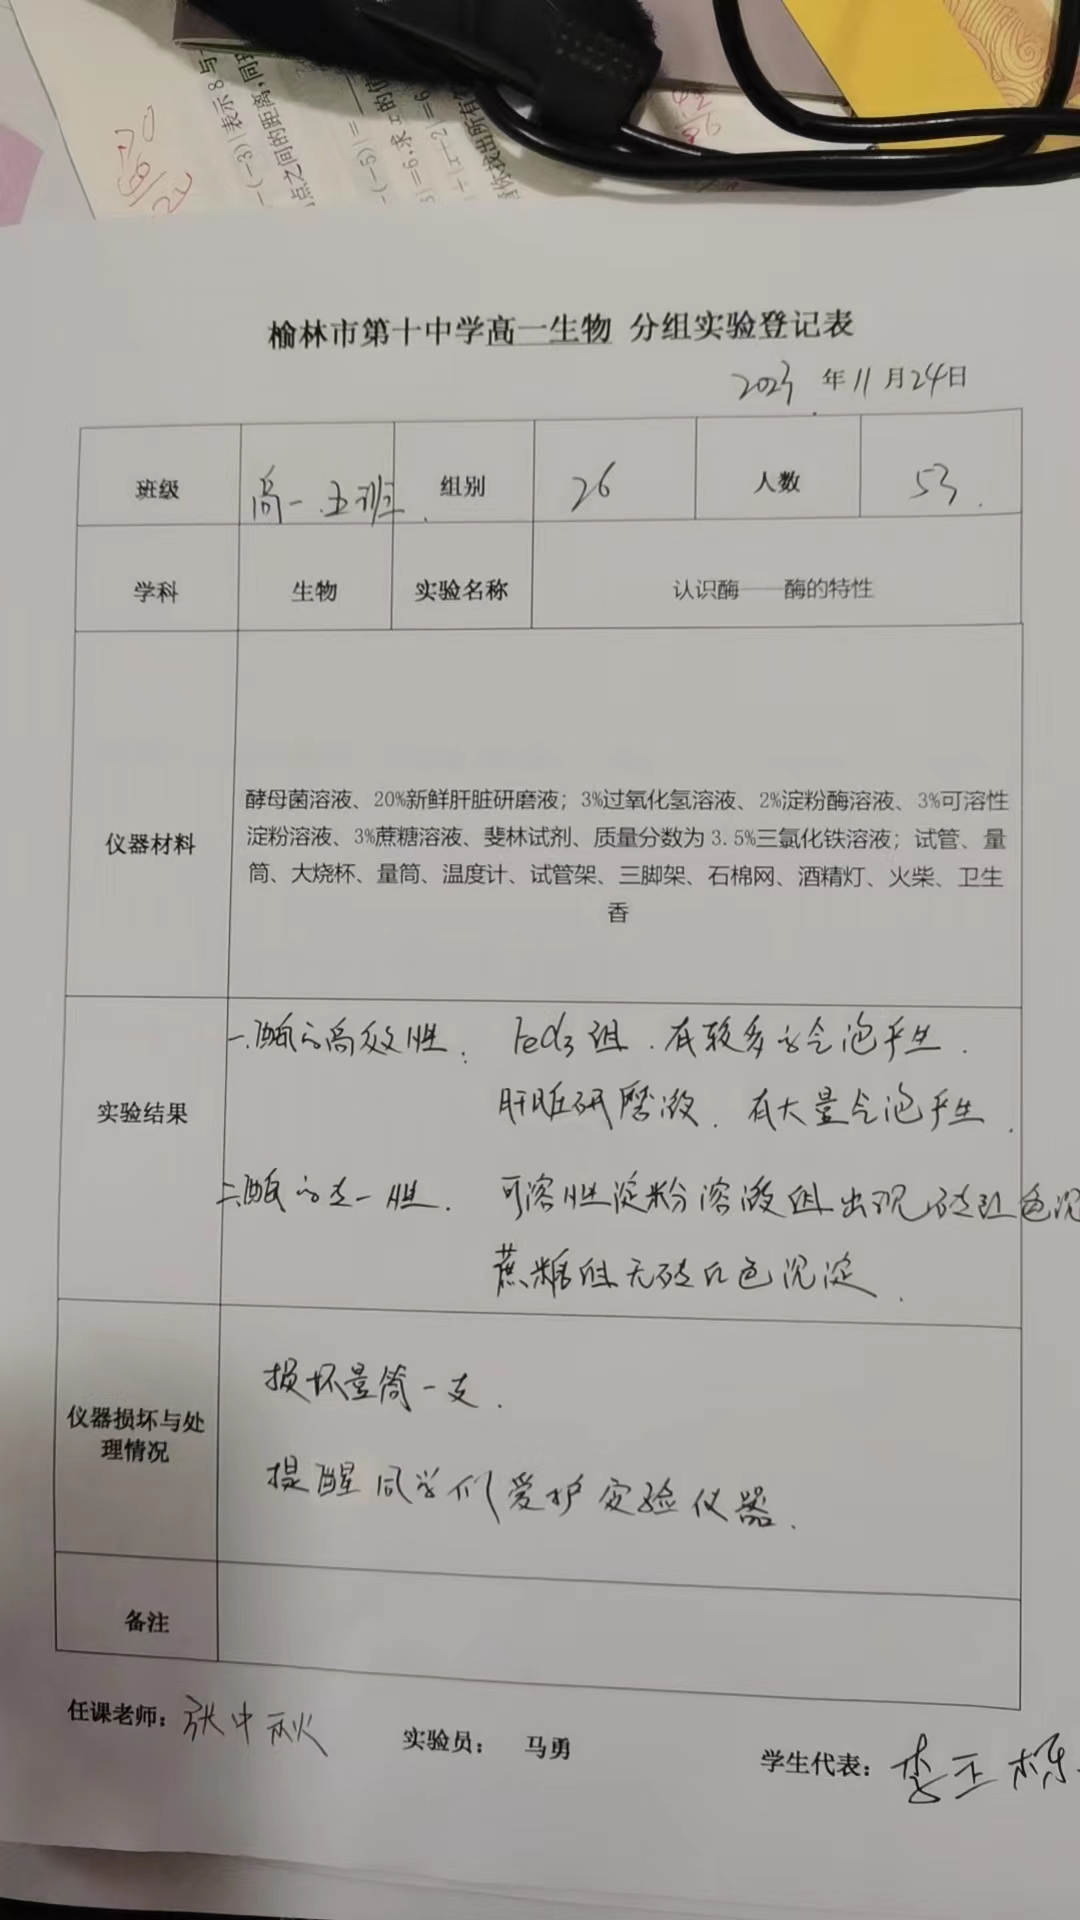 (-3)|表示8与
点之间的距离,同
-(-5)|=
|=6,求x的值
+|x+2|=6
榆林市第十中学高一生物 分组实验登记表
2023 年 11 月 24 日
班级 高一.五班. 组别 26 人数 53.
学科 生物 实验名称 认识酶——酶的特性
仪器材料
酵母菌溶液、20%新鲜肝脏研磨液；3%过氧化氢溶液、2%淀粉酶溶液、3%可溶性
淀粉溶液、3%蔗糖溶液、斐林试剂、质量分数为 3.5%三氯化铁溶液；试管、量
筒、大烧杯、量筒、温度计、试管架、三脚架、石棉网、酒精灯、火柴、卫生
香
实验结果
一.酶的高效性. FeCl3组.有较多的气泡产生.
肝脏研磨液.有大量气泡产生.
二.酶的专一性. 可溶性淀粉溶液组出现砖红色沉
蔗糖组无砖红色沉淀.
仪器损坏与处
理情况
损坏量筒一支.
提醒同学们爱护实验仪器.
备注
任课老师：张中秋 实验员： 马勇 学生代表：李正栎